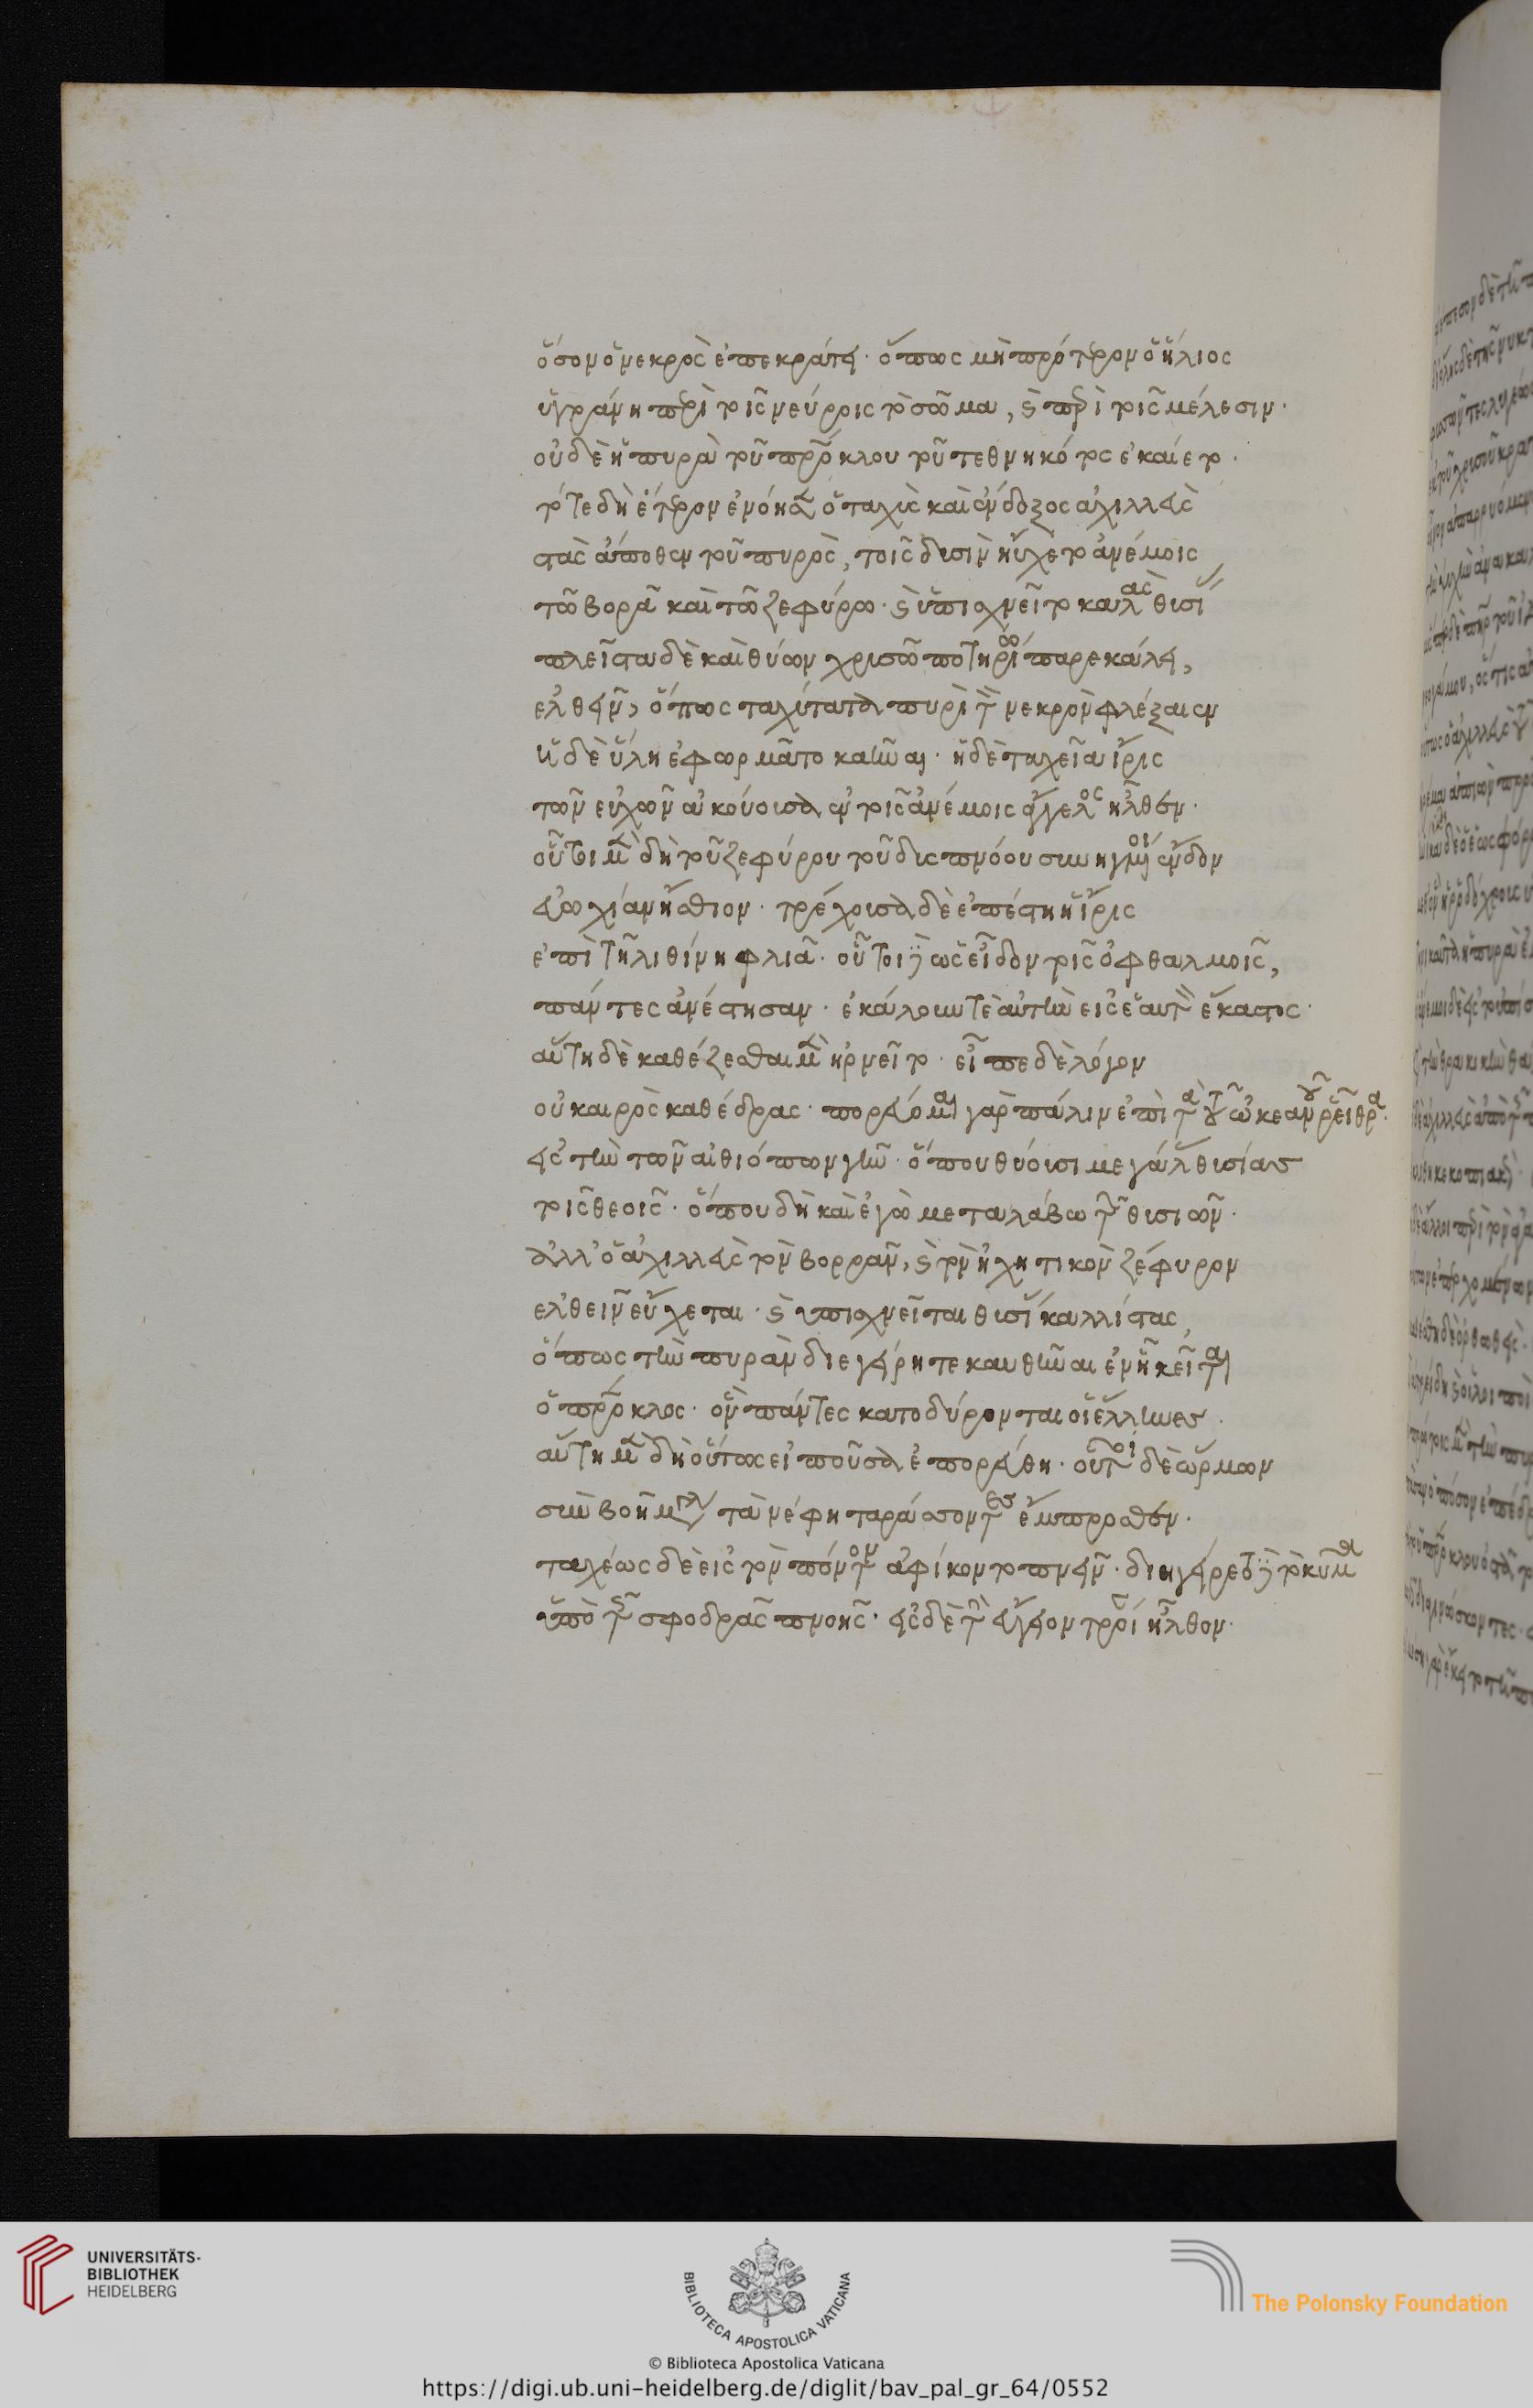 ὅσον ὁ νεκρὸς ἐπεκράτει· ὅπως μὴ πρότερον ὁ ἥλιος
ὑγράνη περὶ τοῖς νεύροις τὸ σῶμα, καὶ περὶ τοῖς μέλεσιν·
οὐδὲ ἡ πυρὰ τοῦ πατρόκλου τοῦ τεθνηκότος ἐκαίετο·
τότε δὴ ἕτερον ἐνόησεν ὁ ταχὺς καὶ ἔνδοξος ἀχιλλεὺς
στὰς ἄποθεν τοῦ πυρὸς, τοῖς δυσὶν ηὔχετο ἀνέμοις
τῶ βορᾶ καὶ τῶ ζεφύρω· καὶ ὑπισχνεῖτο καλὰς θυσίας
πλεῖστα δὲ καὶ θύων χρυσῶ ποτηρίω παρεκάλει,
ἐλθεῖν, ὅπως ταχύτατα πυρὶ τὸν νεκρὸν φλέξαιεν
ἡ δὲ ὕλη ἐφωρμᾶτο καῆναι· ἡ δὲ ταχεῖα ἶρις
τῶν εὐχῶν ἀκούουσα ἐν τοῖς ἀνέμοις ἄγγελος ἦλθεν·
οὗτοι μὲν δὴ τοῦ ζεφύρου τοῦ δυσπνόου συνηγμένοι ἔνδον
εὐωχίαν ἤσθιον· τρέχουσα δὲ ἐπέστη ἡ ἶρις
ἐπὶ τῆ λιθίνη φλιᾶ· οὗτοι δὲ ὡς εἶδον τοῖς ὀφθαλμοῖς,
πάντες ἀνέστησαν· ἐκάλουν τὲ αὐτὴν εἰς ἑαυτὸν ἕκαστος·
αὕτη δὲ καθέζεσθαι μὲν ἠρνεῖτο· εἶπε δὲ λόγον
οὐ καιρὸς καθέδρας· πορεύομαι γὰρ πάλιν ἐπὶ τὰ τοῦ ὠκεανοῦ ῥεῖθρα·
εἰς τὴν τῶν αἰθιόπων γῆν· ὅπου θύουσι μεγάλας θυσίας
τοῖς θεοῖς· ὅπου δὴ καὶ ἐγὼ μεταλάβω τῶν θυσιῶν·
ἀλλ' ὁ ἀχιλλεὺς τὸν βορρᾶν, καὶ τὸν ἠχητικὸν ζέφυρον
ἐλθεῖν εὔχεται· καὶ ὑπισχνεῖται θυσίας καλλίστας,
ὅπως τὴν πυρὰν διεγείρητε καυθῆναι ἐν ἧ κεῖται
ὁ πάτροκλος· ὃν πάντες κατοδύρονται οἱ ἕλληνες·
αὕτη μὲν δὴ οὕτως εἰποῦσα ἐπορεύθη· οὗτοι δὲ ὥρμων
σὺν βοῆ μεγάλη τὰ νέφη ταράσσοντες ἔμπροσθεν·
ταχέως δὲ εἰς τὸν πόντον ἀφίκοντο πνεῖν· διηγείρετο δὲ τὸ κῦμα
ὑπὸ τῆς σφοδρᾶς πνοῆς· εἰς δὲ τὴν εὔγειον τροίαν ἦλθον·
UNIVERSITÄTS-
BIBLIOTHEK
HEIDELBERG
BIBLIOTECA APOSTOLICA VATICANA
The Polonsky Foundation
© Biblioteca Apostolica Vaticana
https://digi.ub.uni-heidelberg.de/diglit/bav_pal_gr_64/0552